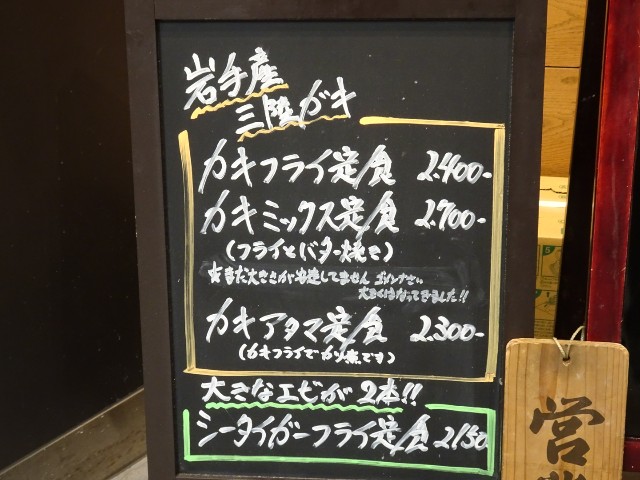 岩手産
三陸ガキ
カキフライ定食 2.400-
カキミックス定食 2.700-
(フライとバター焼き)
☆まだ大きさが安定してません ゴメンナさい
大きくはなってきました!!
カキアタマ定食 2.300-
(カキフライでカツ煮です)
大きなエビが2本!!
シータイガーフライ定食 2150
営